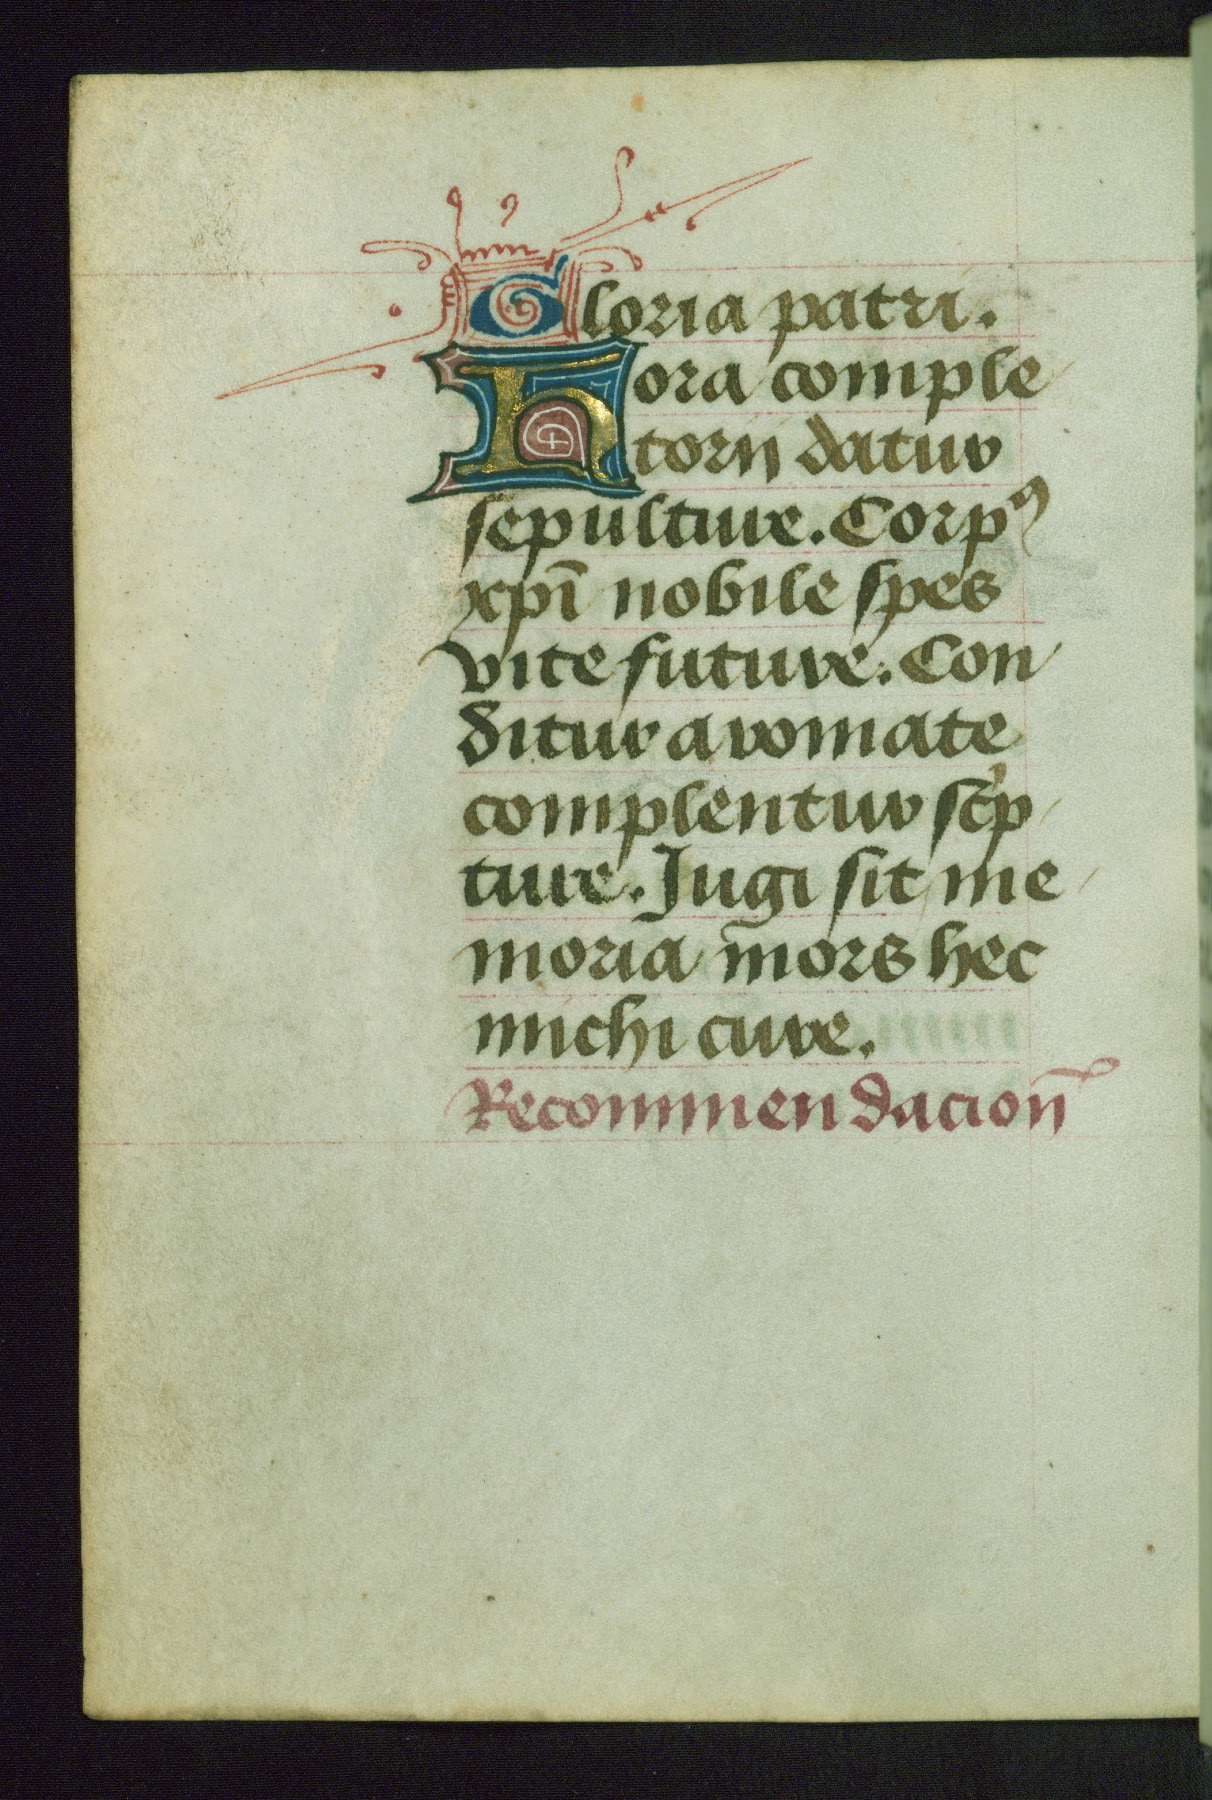 Gloria patri.
Hora comple
torij datur
sepulture. Corpꝰ
xpī nobile spes
vite future. Con
ditur aromate
complentur sc'p
ture. Jugi sit me
moria m̄ors hec
michi cure.
Recommendacion̄